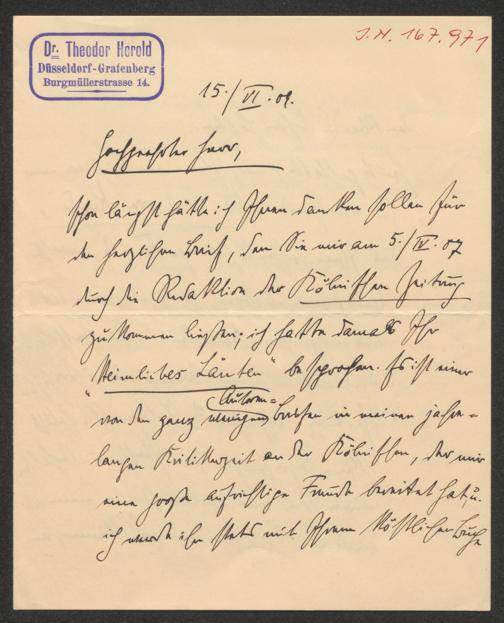 Dr. Theodor Herold
Düsseldorf-Grafenberg
Burgmüllerstrasse 14.
I.N. 167.971
15./VI.09.
Hochgeehrter Herr,
schon längst hätte ich Ihnen danken sollen für
den herzlichen Brief, den Sie mir am 5./IV.07
durch die Redaktion der Kölnischen Zeitung
zukommen ließen; ich hatte damals Ihr
"Heimliches Läuten" besprochen. Es ist einer
von den ganz wenigen Autoren-
briefen in meiner jahre-
langen Kritikerzeit an der Kölnischen, der mir
eine große aufrichtige Freude bereitet hat, u.
ich werde ihn stets mit Ihrem köstlichen Buche